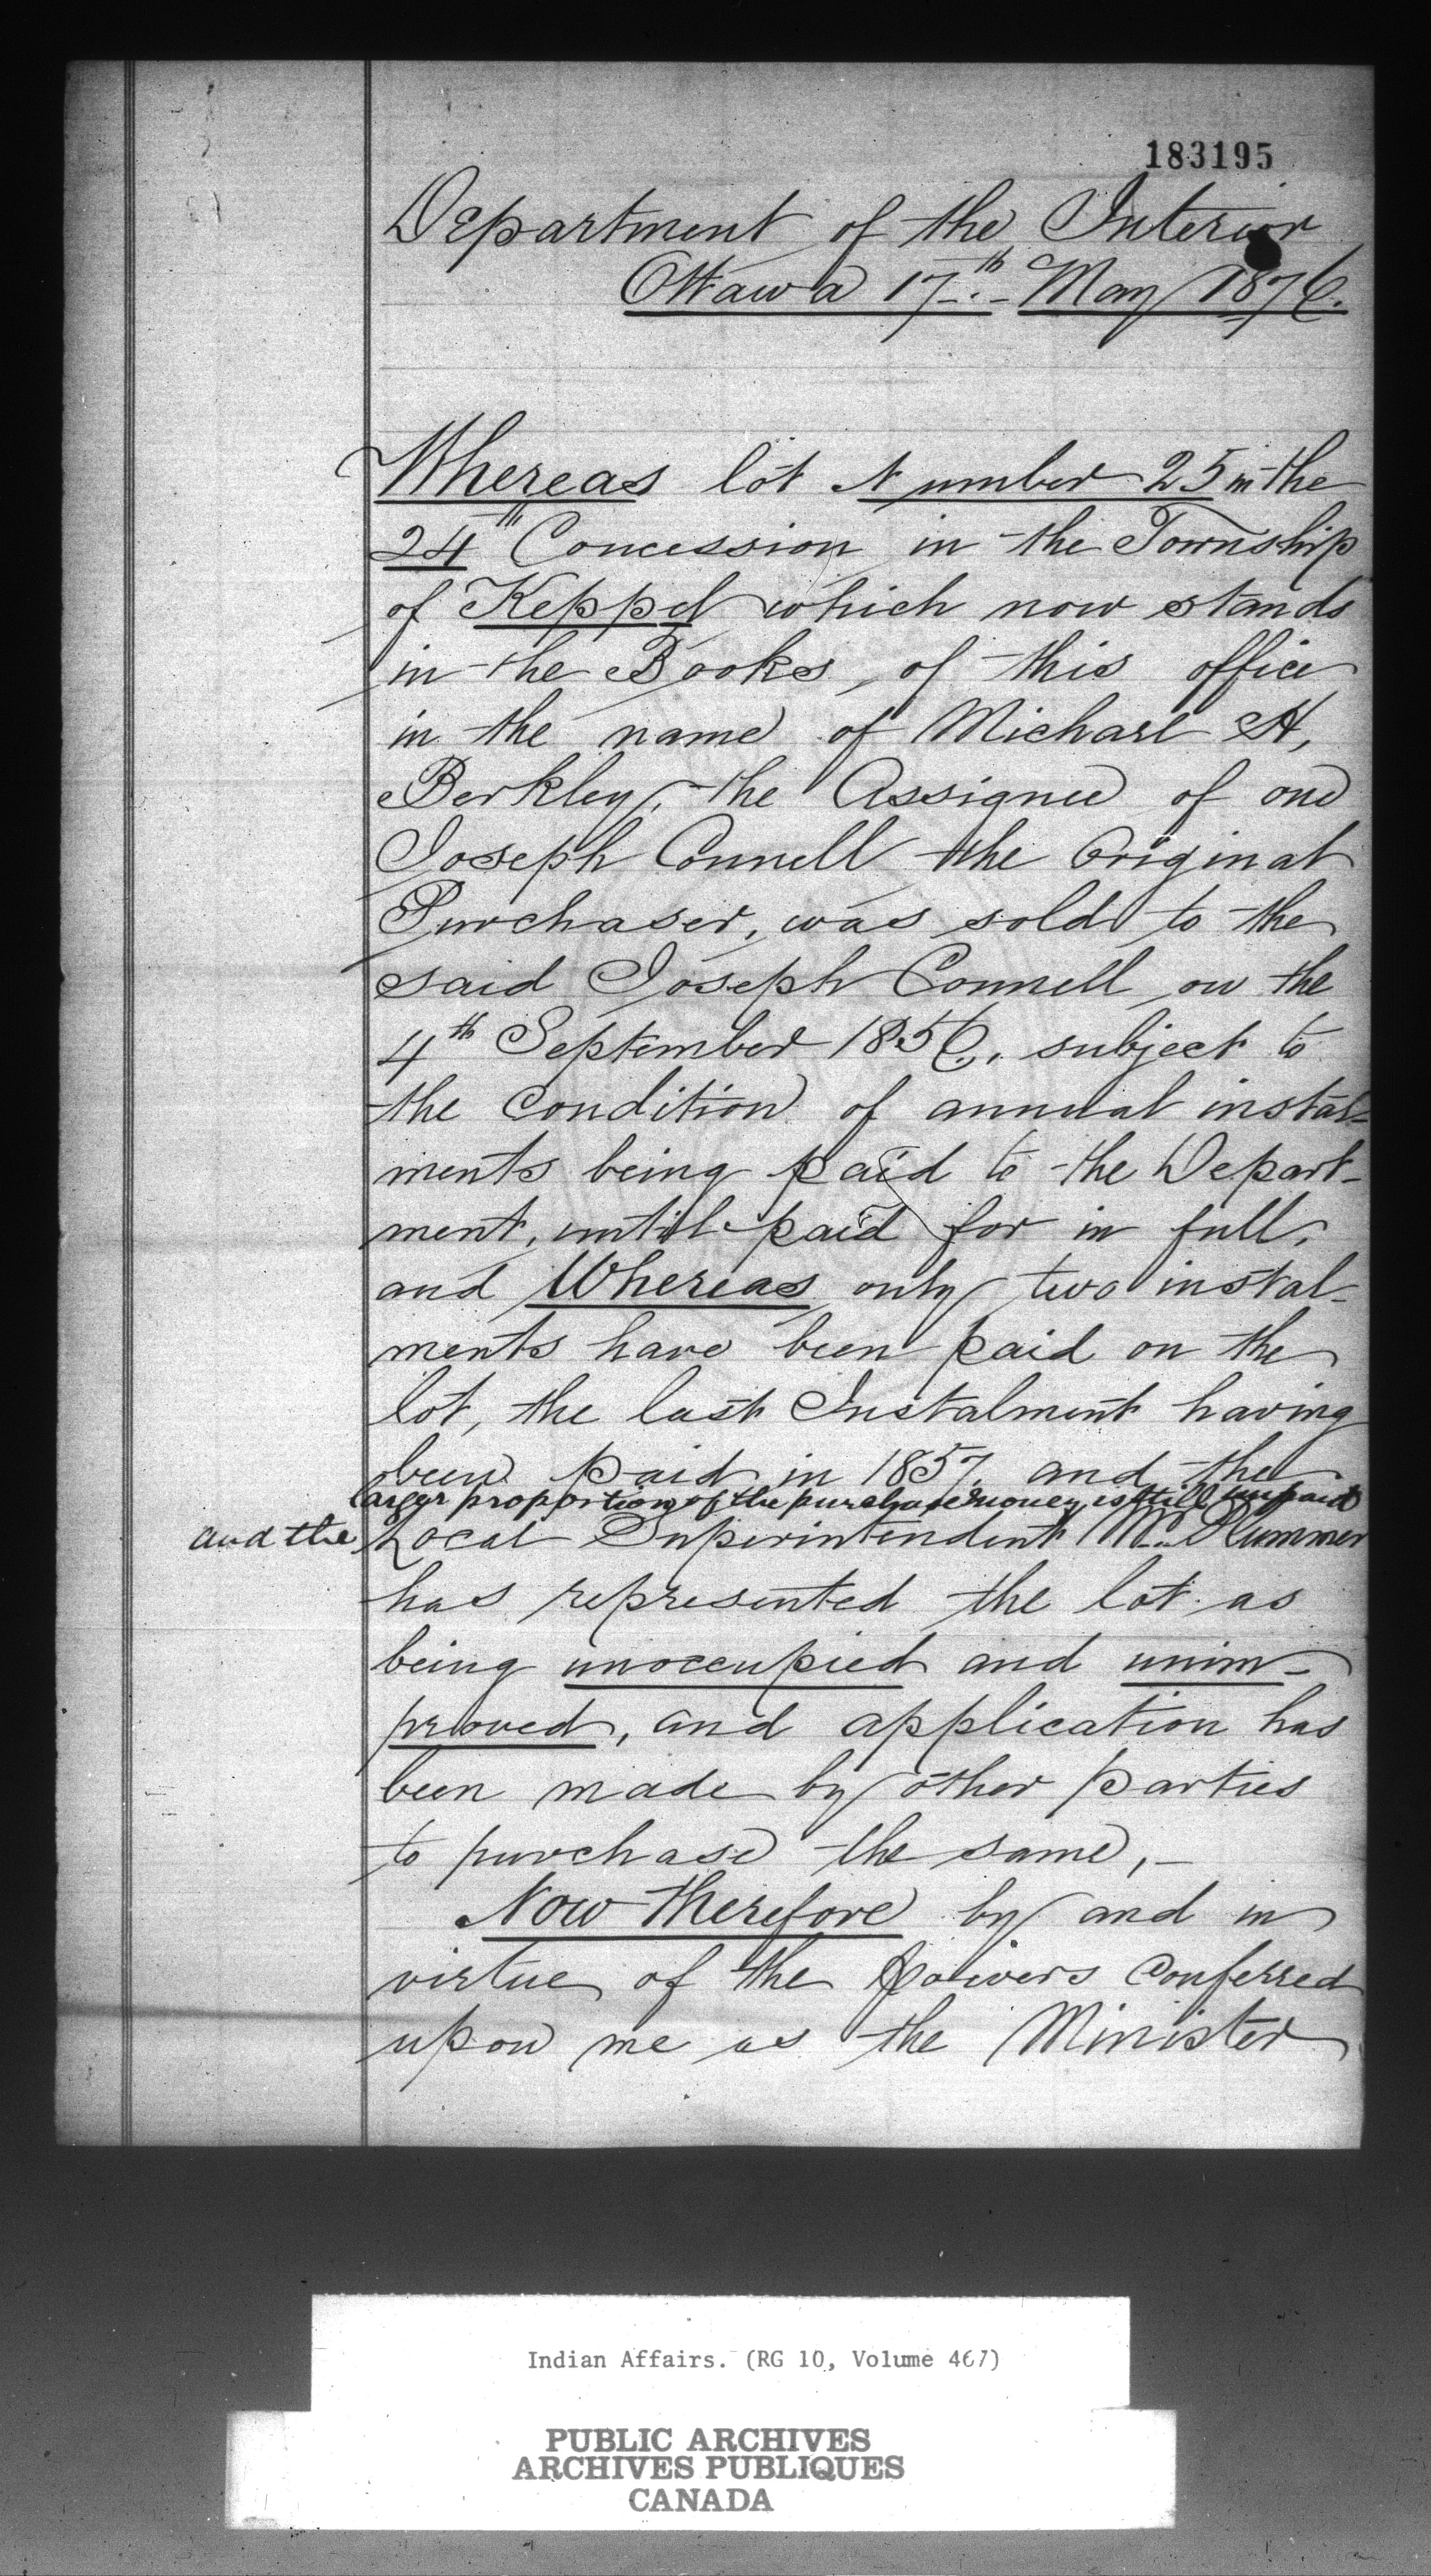 183195
Department of the Interior
Ottawa 17th May 1876.
Whereas lot Number 25 in the
24th Concession in the Township
of Keppel which now stands
in the Books, of this office
in the name of Michael H,
Berkley, the Assignee of one
Joseph Connell the Original
Purchaser, was sold to the
said Joseph Connell on the
4th September 1856, subject to
the Condition of annual instal-
ments being paid to the Depart-
ment, until paid for in full,
and Whereas only two instal-
ments have been paid on the
lot, the last Instalment having
been paid in 1857. and the
larger proportion of the purchase money is still unpaid
and the Local Superintendent Mr. Plummer
has represented the lot as
being unoccupied and unim-
proved, and application has
been made by other parties
to purchase the same,-
Now therefore by and in
virtue of the Powers Conferred
upon me as the Minister
Indian Affairs. (RG 10, Volume 467)
PUBLIC ARCHIVES
ARCHIVES PUBLIQUES
CANADA